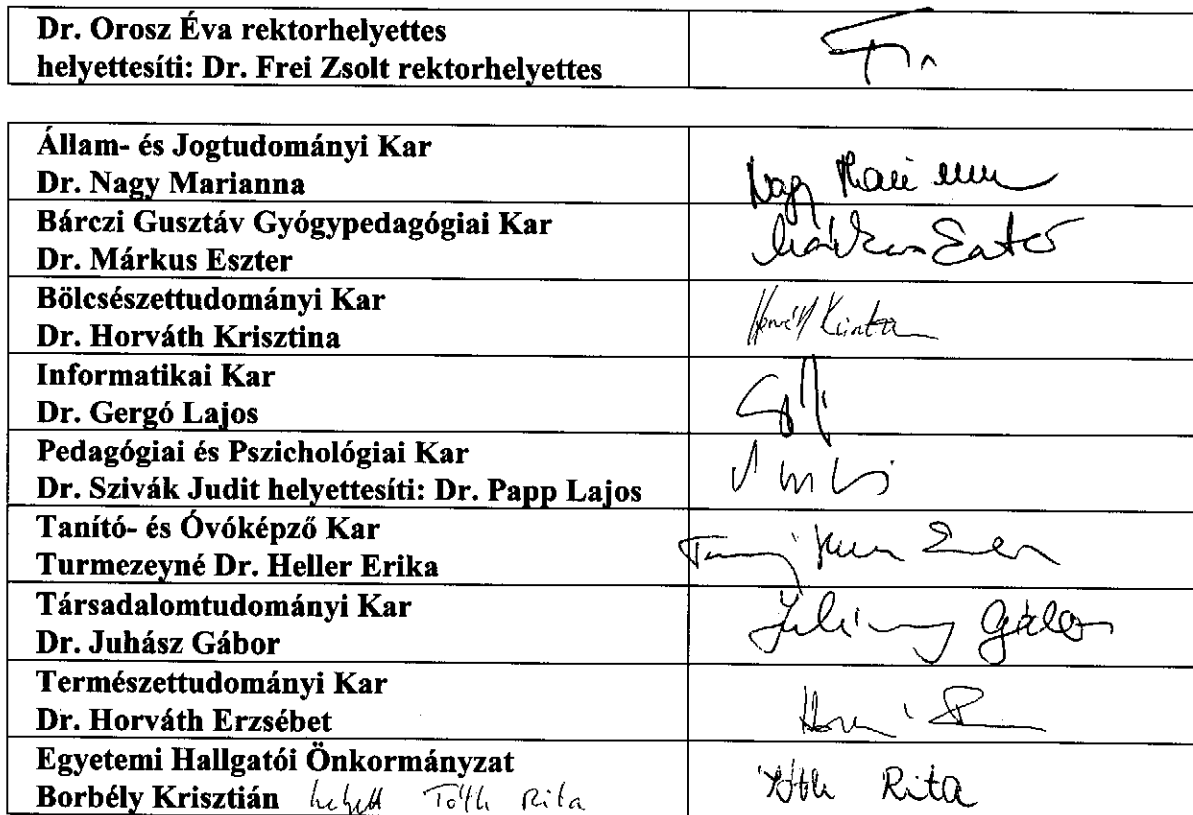 Dr. Orosz Éva rektorhelyettes
helyettesíti: Dr. Frei Zsolt rektorhelyettes
Állam- és Jogtudományi Kar
Dr. Nagy Marianna
Nagy
Bárczi Gusztáv Gyógypedagógiai Kar
Dr. Márkus Eszter
Bölcsészettudományi Kar
Dr. Horváth Krisztina
Informatikai Kar
Dr. Gergó Lajos
Pedagógiai és Pszichológiai Kar
Dr. Szivák Judit helyettesíti: Dr. Papp Lajos
Tanító- és Óvóképző Kar
Turmezeyné Dr. Heller Erika
Társadalomtudományi Kar
Dr. Juhász Gábor
Természettudományi Kar
Dr. Horváth Erzsébet
Egyetemi Hallgatói Önkormányzat
Borbély Krisztián helyett Tóth Rita
Tóth Rita